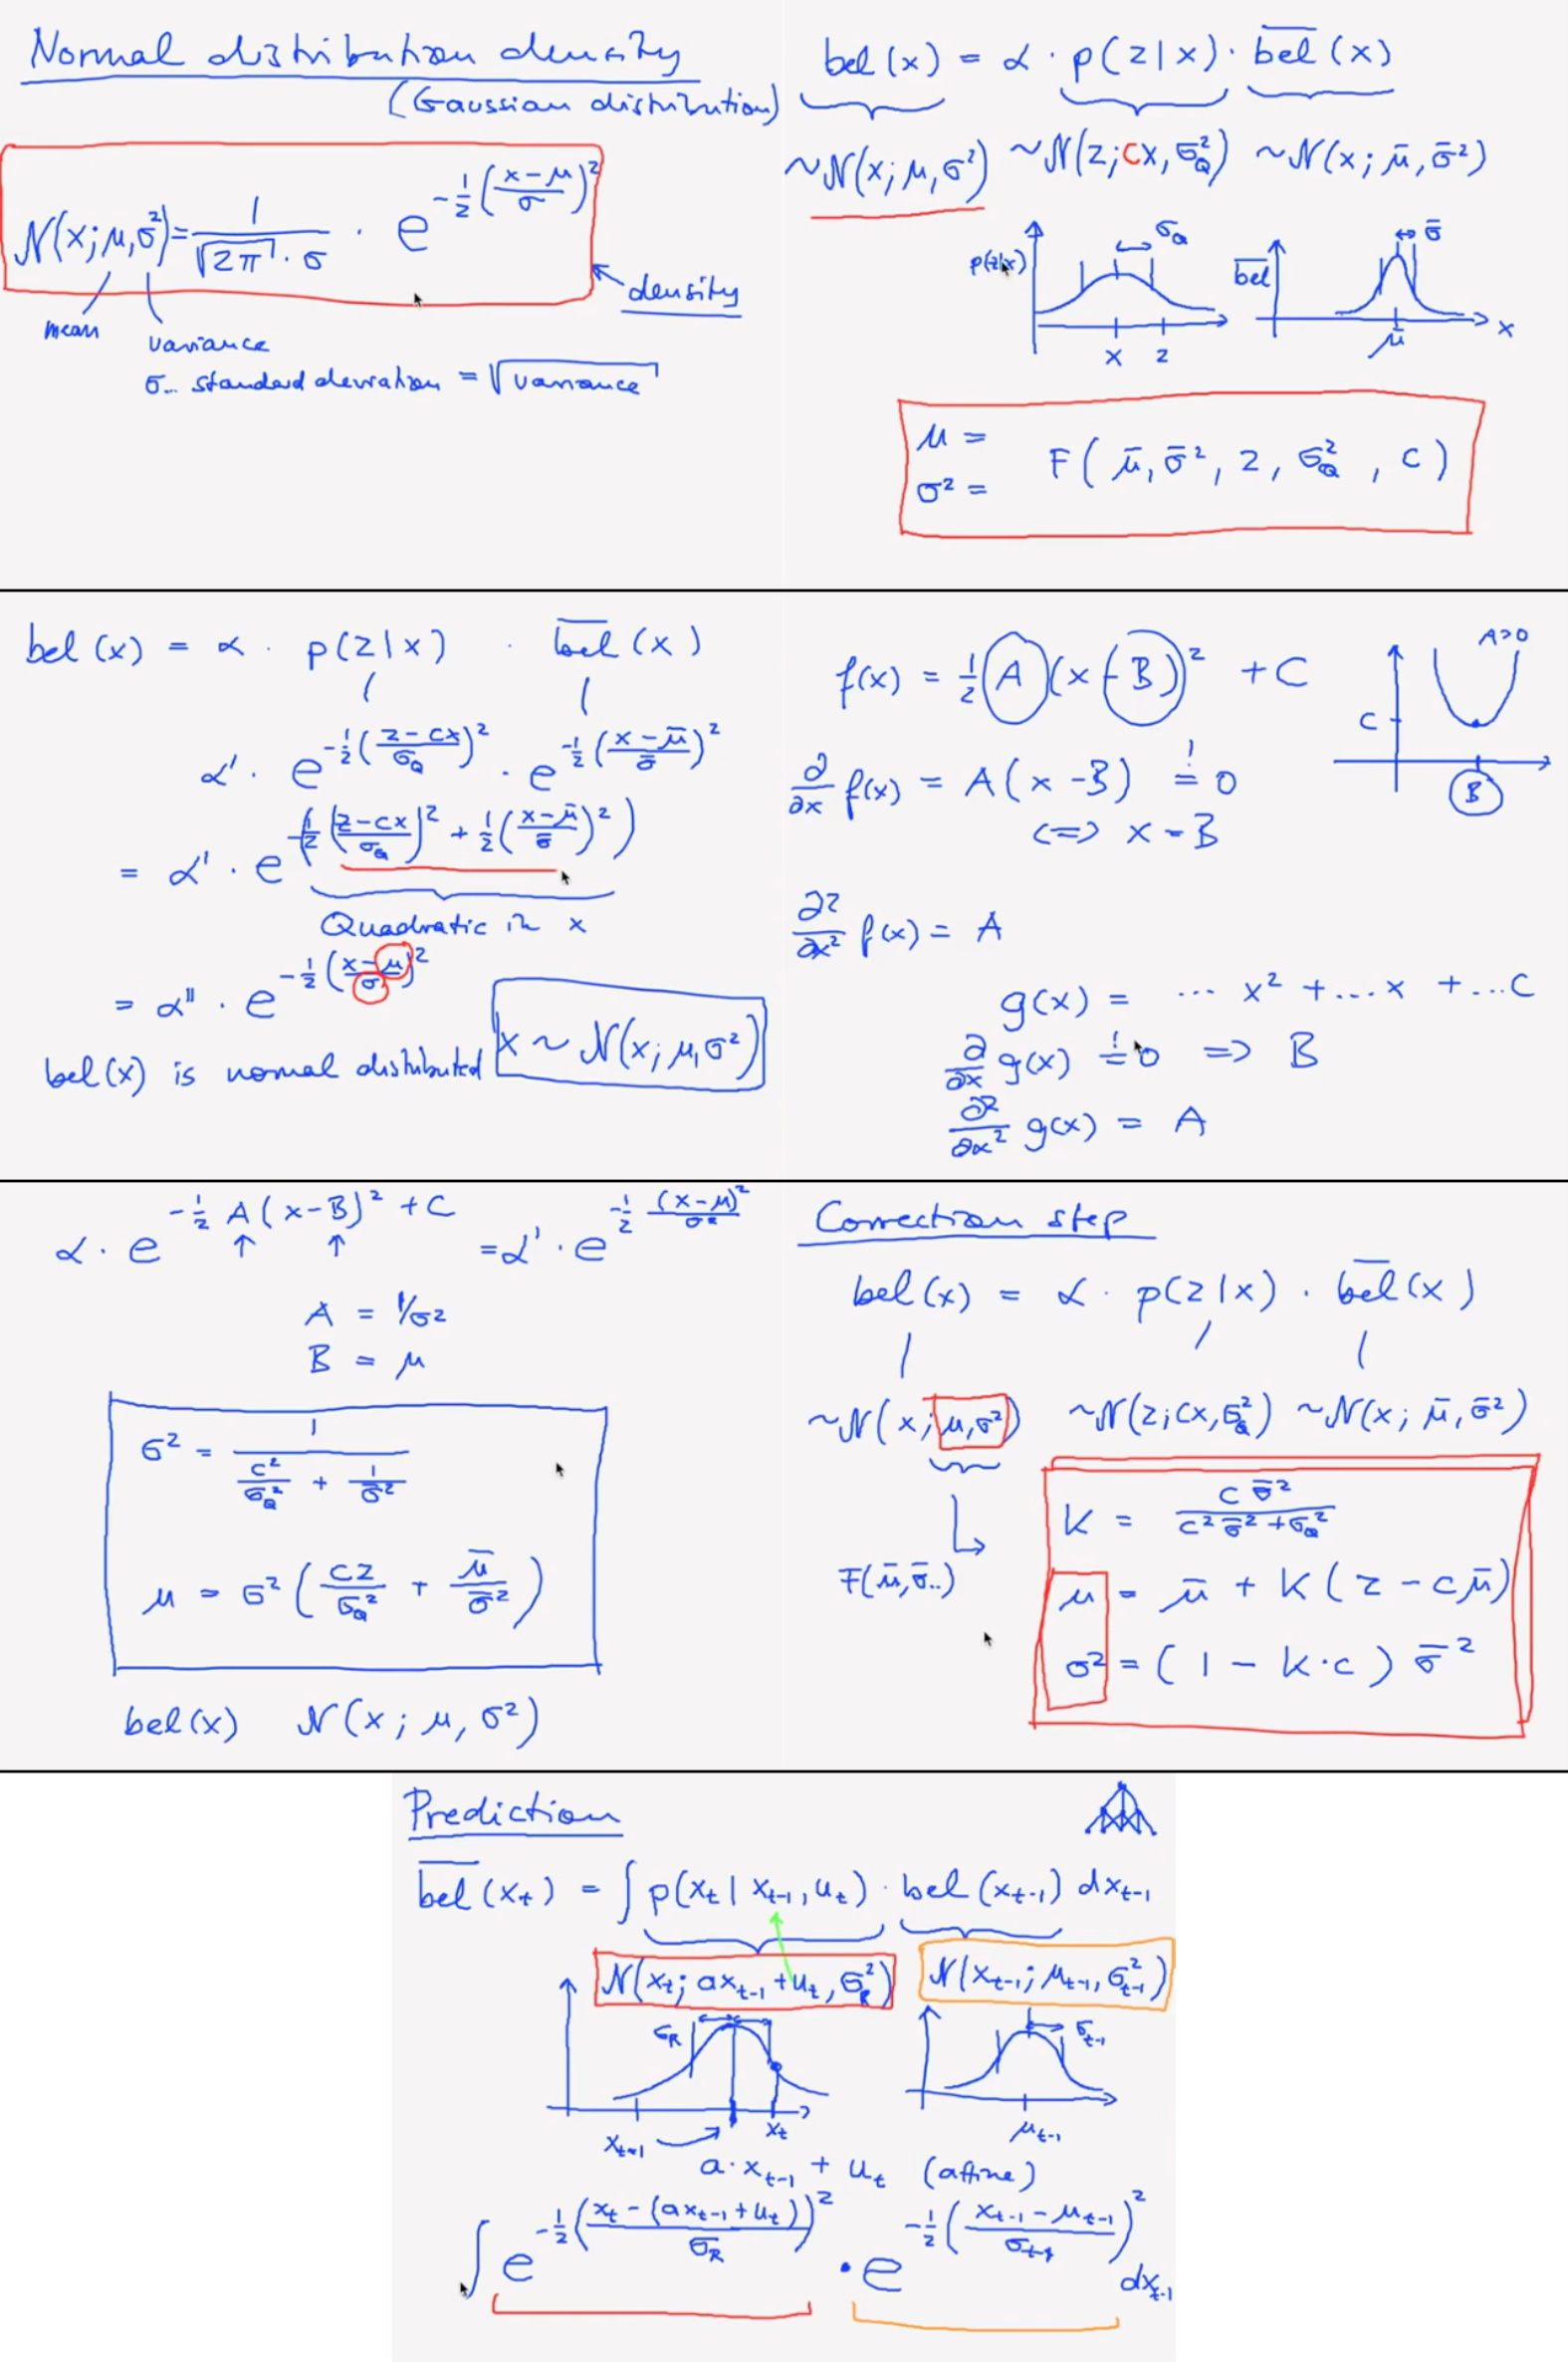 Normal distribution density
(Gaussian distribution)
N(x; μ, σ²) = 1 / (√2π · σ) · e^(-½ ((x-μ)/σ)²)
density
mean
variance
σ... standard deviation = √variance
bel(x) = α · p(z|x) · b̅e̅l̅(x)
~N(x; μ, σ²) ~N(z; cx, σ_Q²) ~N(x; μ̄, σ̄²)
p(z|x) σ_Q b̅e̅l̅ σ̄
x z μ̄ x
μ =
σ² = F(μ̄, σ̄², z, σ_Q², c)
bel(x) = α · p(z|x) · b̅e̅l̅(x)
α' · e^(-½ ((z-cx)/σ_Q)²) · e^(-½ ((x-μ̄)/σ̄)²)
= α' · e^-(½ ((z-cx)/σ_Q)² + ½ ((x-μ̄)/σ̄)²)
Quadratic in x
= α'' · e^(-½ ((x-μ)/σ)²)
bel(x) is normal distributed x ~ N(x; μ, σ²)
f(x) = ½ A (x - B)² + C
A>0
C
B
∂/∂x f(x) = A(x - B) =! 0
<=> x = B
∂²/∂x² f(x) = A
g(x) = ... x² + ... x + ... C
∂/∂x g(x) =! 0 => B
∂²/∂x² g(x) = A
α · e^(-½ A(x-B)² + C) = α' · e^(-½ (x-μ)²/σ²)
A = 1/σ²
B = μ
σ² = 1 / (c²/σ_Q² + 1/σ̄²)
μ = σ² (cz/σ_Q² + μ̄/σ̄²)
bel(x) N(x; μ, σ²)
Correction step
bel(x) = α · p(z|x) · b̅e̅l̅(x)
~N(x; μ, σ²) ~N(z; cx, σ_Q²) ~N(x; μ̄, σ̄²)
K = c σ̄² / (c² σ̄² + σ_Q²)
F(μ̄, σ̄..)
μ = μ̄ + K(z - cμ̄)
σ² = (1 - K·c) σ̄²
Prediction
b̅e̅l̅(x_t) = ∫ p(x_t | x_t-1, u_t) · bel(x_t-1) dx_t-1
N(x_t; ax_t-1 + u_t, σ_R²) N(x_t-1; μ_t-1, σ_t-1²)
σ_R σ_t-1
x_t-1 x_t μ_t-1
a · x_t-1 + u_t (affine)
∫ e^(-½ ((x_t - (ax_t-1 + u_t))/σ_R)²) · e^(-½ ((x_t-1 - μ_t-1)/σ_t-1)²) dx_t-1